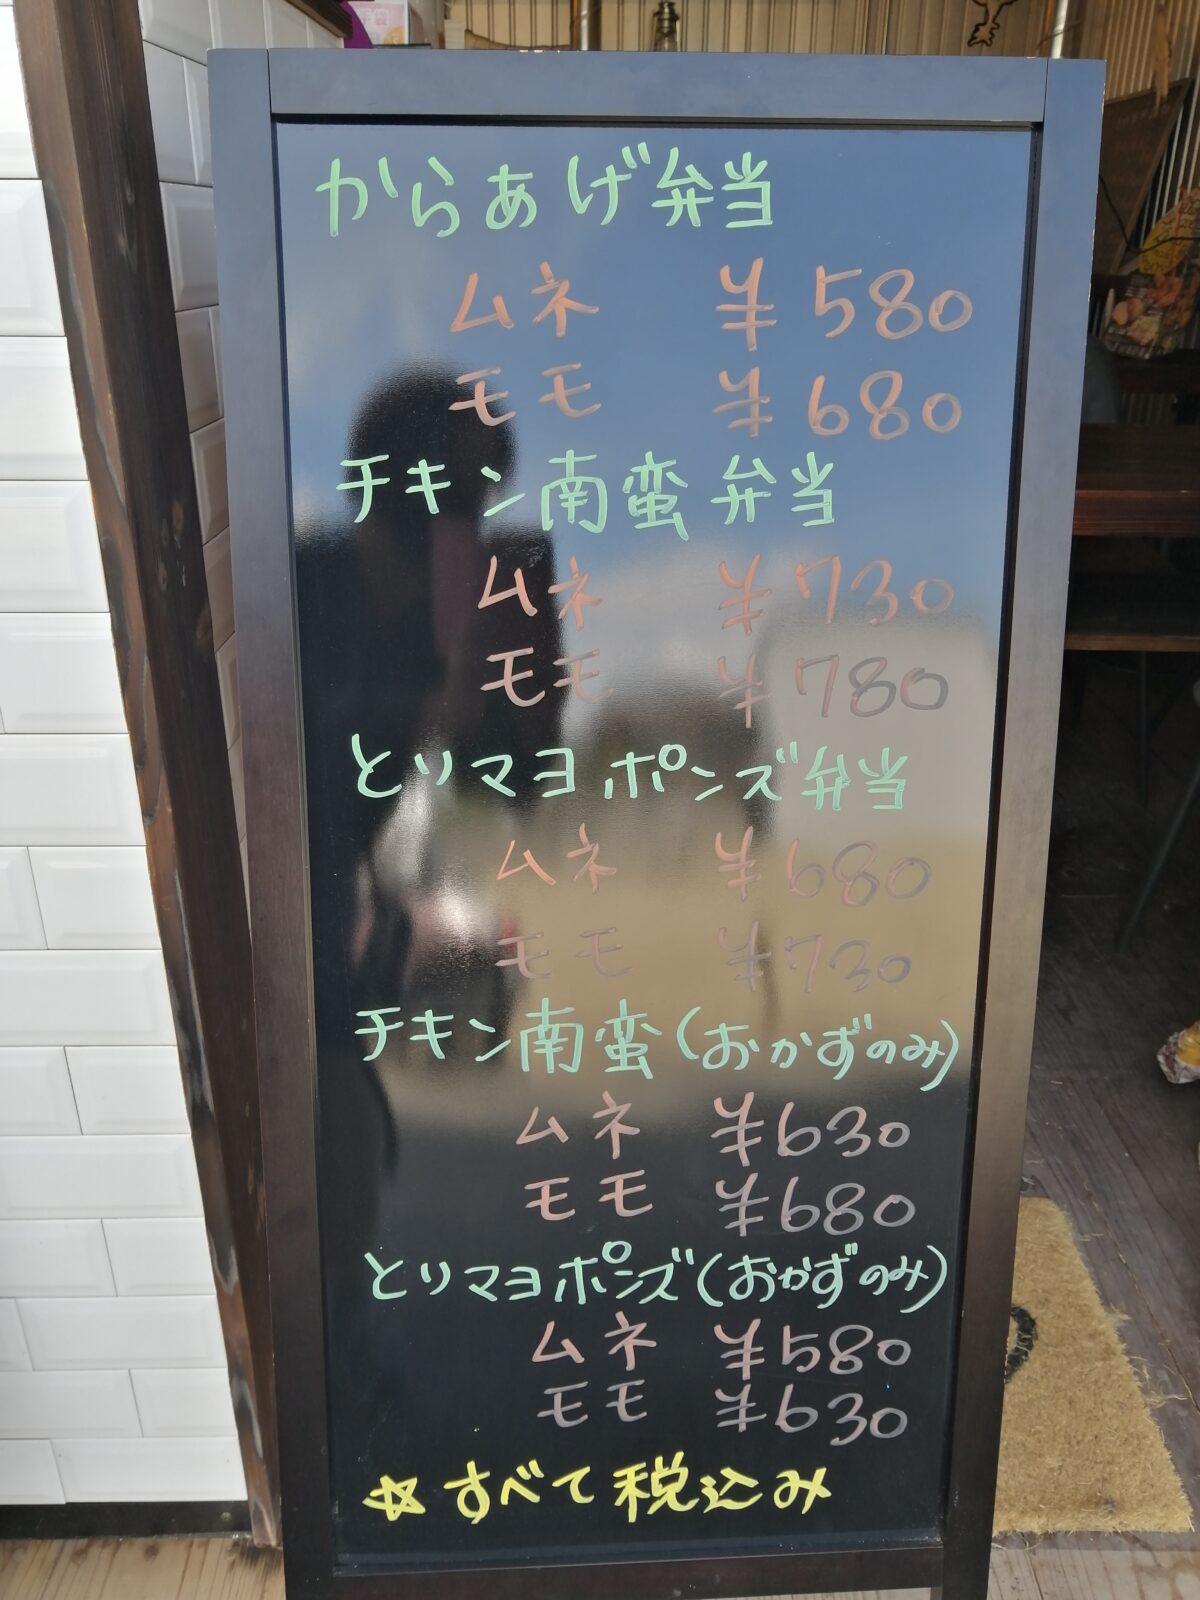 からあげ弁当
ムネ ¥580
モモ ¥680
チキン南蛮弁当
ムネ ¥730
モモ ¥780
とりマヨポンズ弁当
ムネ ¥680
モモ ¥730
チキン南蛮(おかずのみ)
ムネ ¥630
モモ ¥680
とりマヨポンズ(おかずのみ)
ムネ ¥580
モモ ¥630
☆すべて税込み